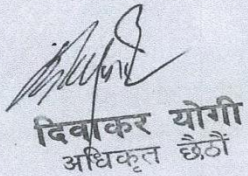 दिवाकर योगी
अधिकृत छैठौं